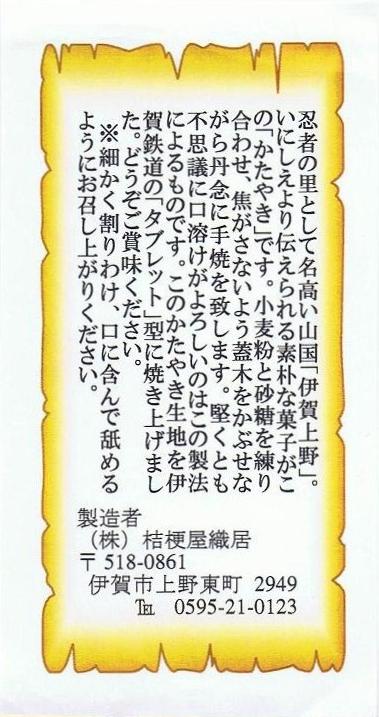 忍者の里として名高い山国「伊賀上野」。
いにしえより伝えられる素朴な菓子がこ
の「かたやき」です。小麦粉と砂糖を練り
合わせ、焦がさないよう蓋木をかぶせな
がら丹念に手焼を致します。堅くとも
不思議に口溶けがよろしいのはこの製法
によるものです。このかたやき生地を伊
賀鉄道の「タブレット」型に焼き上げまし
た。どうぞご賞味ください。
※細かく割りわけ、口に含んで舐める
ようにお召し上がりください。
製造者
（株）桔梗屋織居
〒518-0861
伊賀市上野東町 2949
℡ 0595-21-0123